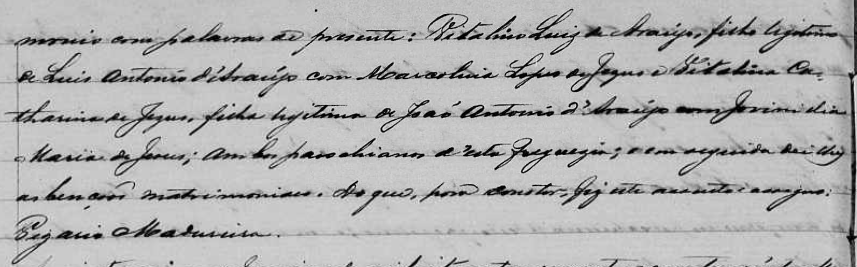 monio com palavras de presente: Vitalino Luiz de Araujo, filho legitimo
de Luis Antonio d'Araújo com Marcolina Lopes de Jezus e Vitalina Ca-
tharina de Jezus, filha legitima de João Antonio d'Araújo com Jovini dia
Maria de Jesus; ambos parochianos d'esta freguezia; e em seguida dei lhes
as bençoes matrimoniaes. Do que, para constar, fiz este assento e assigno.
Vigario Madureira.